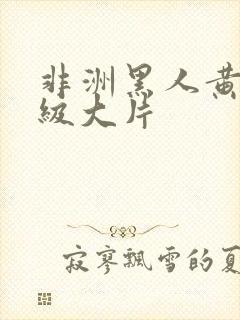 非洲黑人黄
級大片
寂寥飄雪的夏